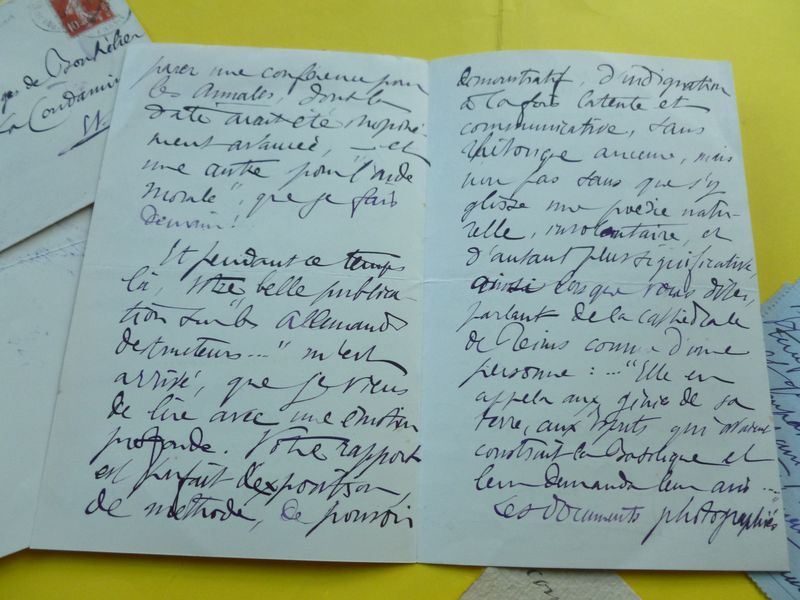 ges de Bouhélier
La Condamin
parer une conférence pour
les Annales, dont la
date avait été inopiné-
ment avancée, — et
une autre pour "l'aide
morale", que je fais
demain!
Et pendant ce temps
là, votre belle publica-
tion sur "les Allemands
destructeurs..." m'est
arrivée, que je viens
de lire avec une émotion
profonde. Votre rapport
est parfait d'exposition,
de méthode, de pouvoir
démonstratif, d'indignation
à la fois latente et
communicative, sans
rhétorique aucune, mais
non pas sans que s'y
glisse une poésie natu-
relle, involontaire, et
d'autant plus significative,
ainsi lorsque vous dites,
parlant de la cathédrale
de Reims comme d'une
personne : ... "Elle en
appela aux génies de sa
terre, aux esprits qui avaient
construit la Basilique et
leur demanda leur avis ...
Les documents photographiés